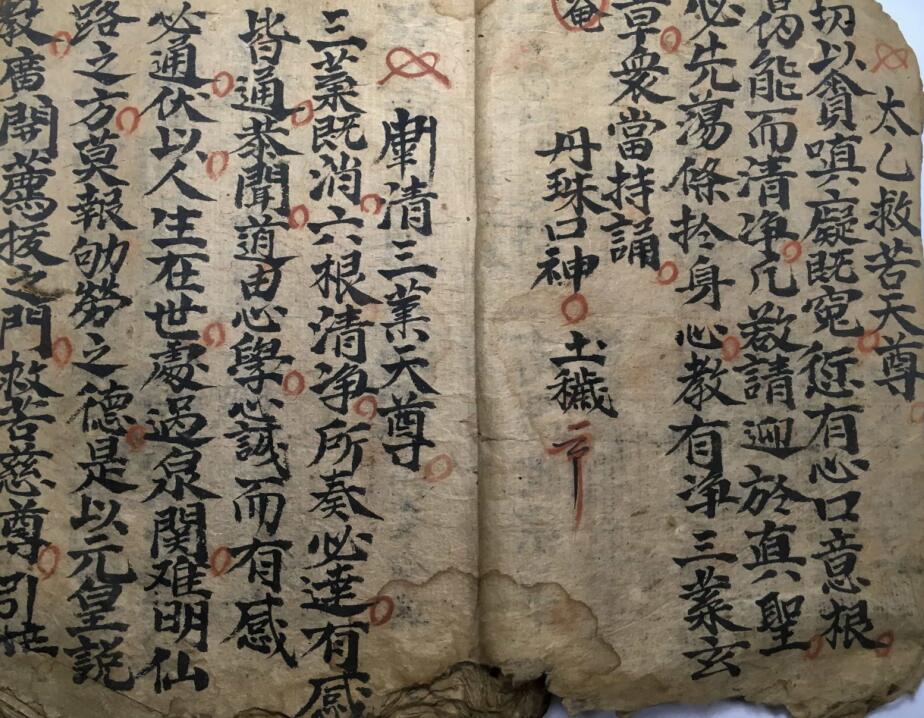 太乙救苦天尊
切以貪嗔癡既寃愆有心口意根
能而清净凢請迎於真聖
必先蕩條扵身心教有净三業玄
章衆當持誦
丹珠口神 土穢
清三業天尊
三業既消六根清净所奏必達有感
皆通恭聞道由心學心誠而有感
必通伏以人生在世處過泉関难明仙
路之方莫報劬勞之德是以元皇説
教廣開薦拔之門救苦慈尊引世